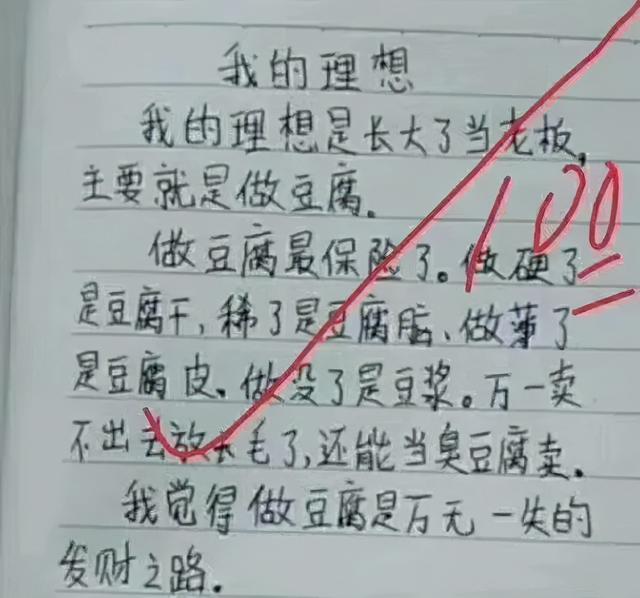 我的理想
我的理想是长大了当老板,
主要就是做豆腐.
做豆腐最保险了。做硬了
是豆腐干,稀了是豆腐脑、做薄了
是豆腐皮、做没了是豆浆。万一卖
不出去放长毛了,还能当臭豆腐卖。
我觉得做豆腐是万无一失的
发财之路.
100